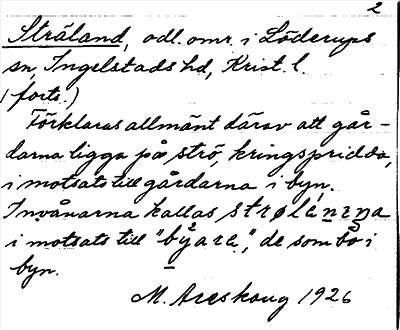 2
Stråland, odl. omr. i Löderups
sn, Ingelstads hd, Krist. l.
(forts.)
Förklaras allmänt därav att går-
darna ligga på strö, kringspridda,
i motsats till gårdarna i byn.
Invånarna kallas
i motsats till "byara", de som bo i
byn.
M. Areskoug 1926